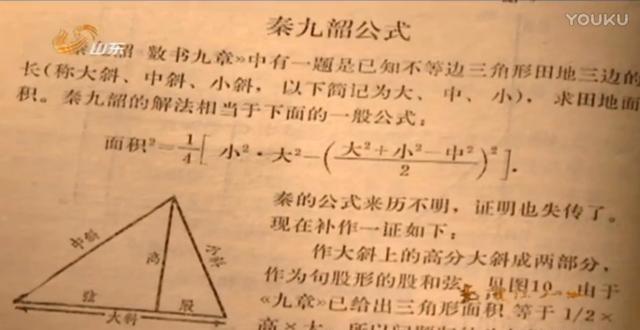 YOUKU
山东
秦九韶公式
秦九韶《数书九章》中有一题是已知不等边三角形田地三边的
长(称大斜、中斜、小斜，以下简记为大、中、小)，求田地面
积。秦九韶的解法相当于下面的一般公式：
面积²=1/4[小²·大²-(大²+小²-中²/2)²].
秦的公式来历不明，证明也失传了。
现在补作一证如下：
作大斜上的高分大斜成两部分，
作为句股形的股和弦。见图10。由于
《九章》已给出三角形面积等于1/2×
高×大
中斜
高
小斜
弦
股
大斜